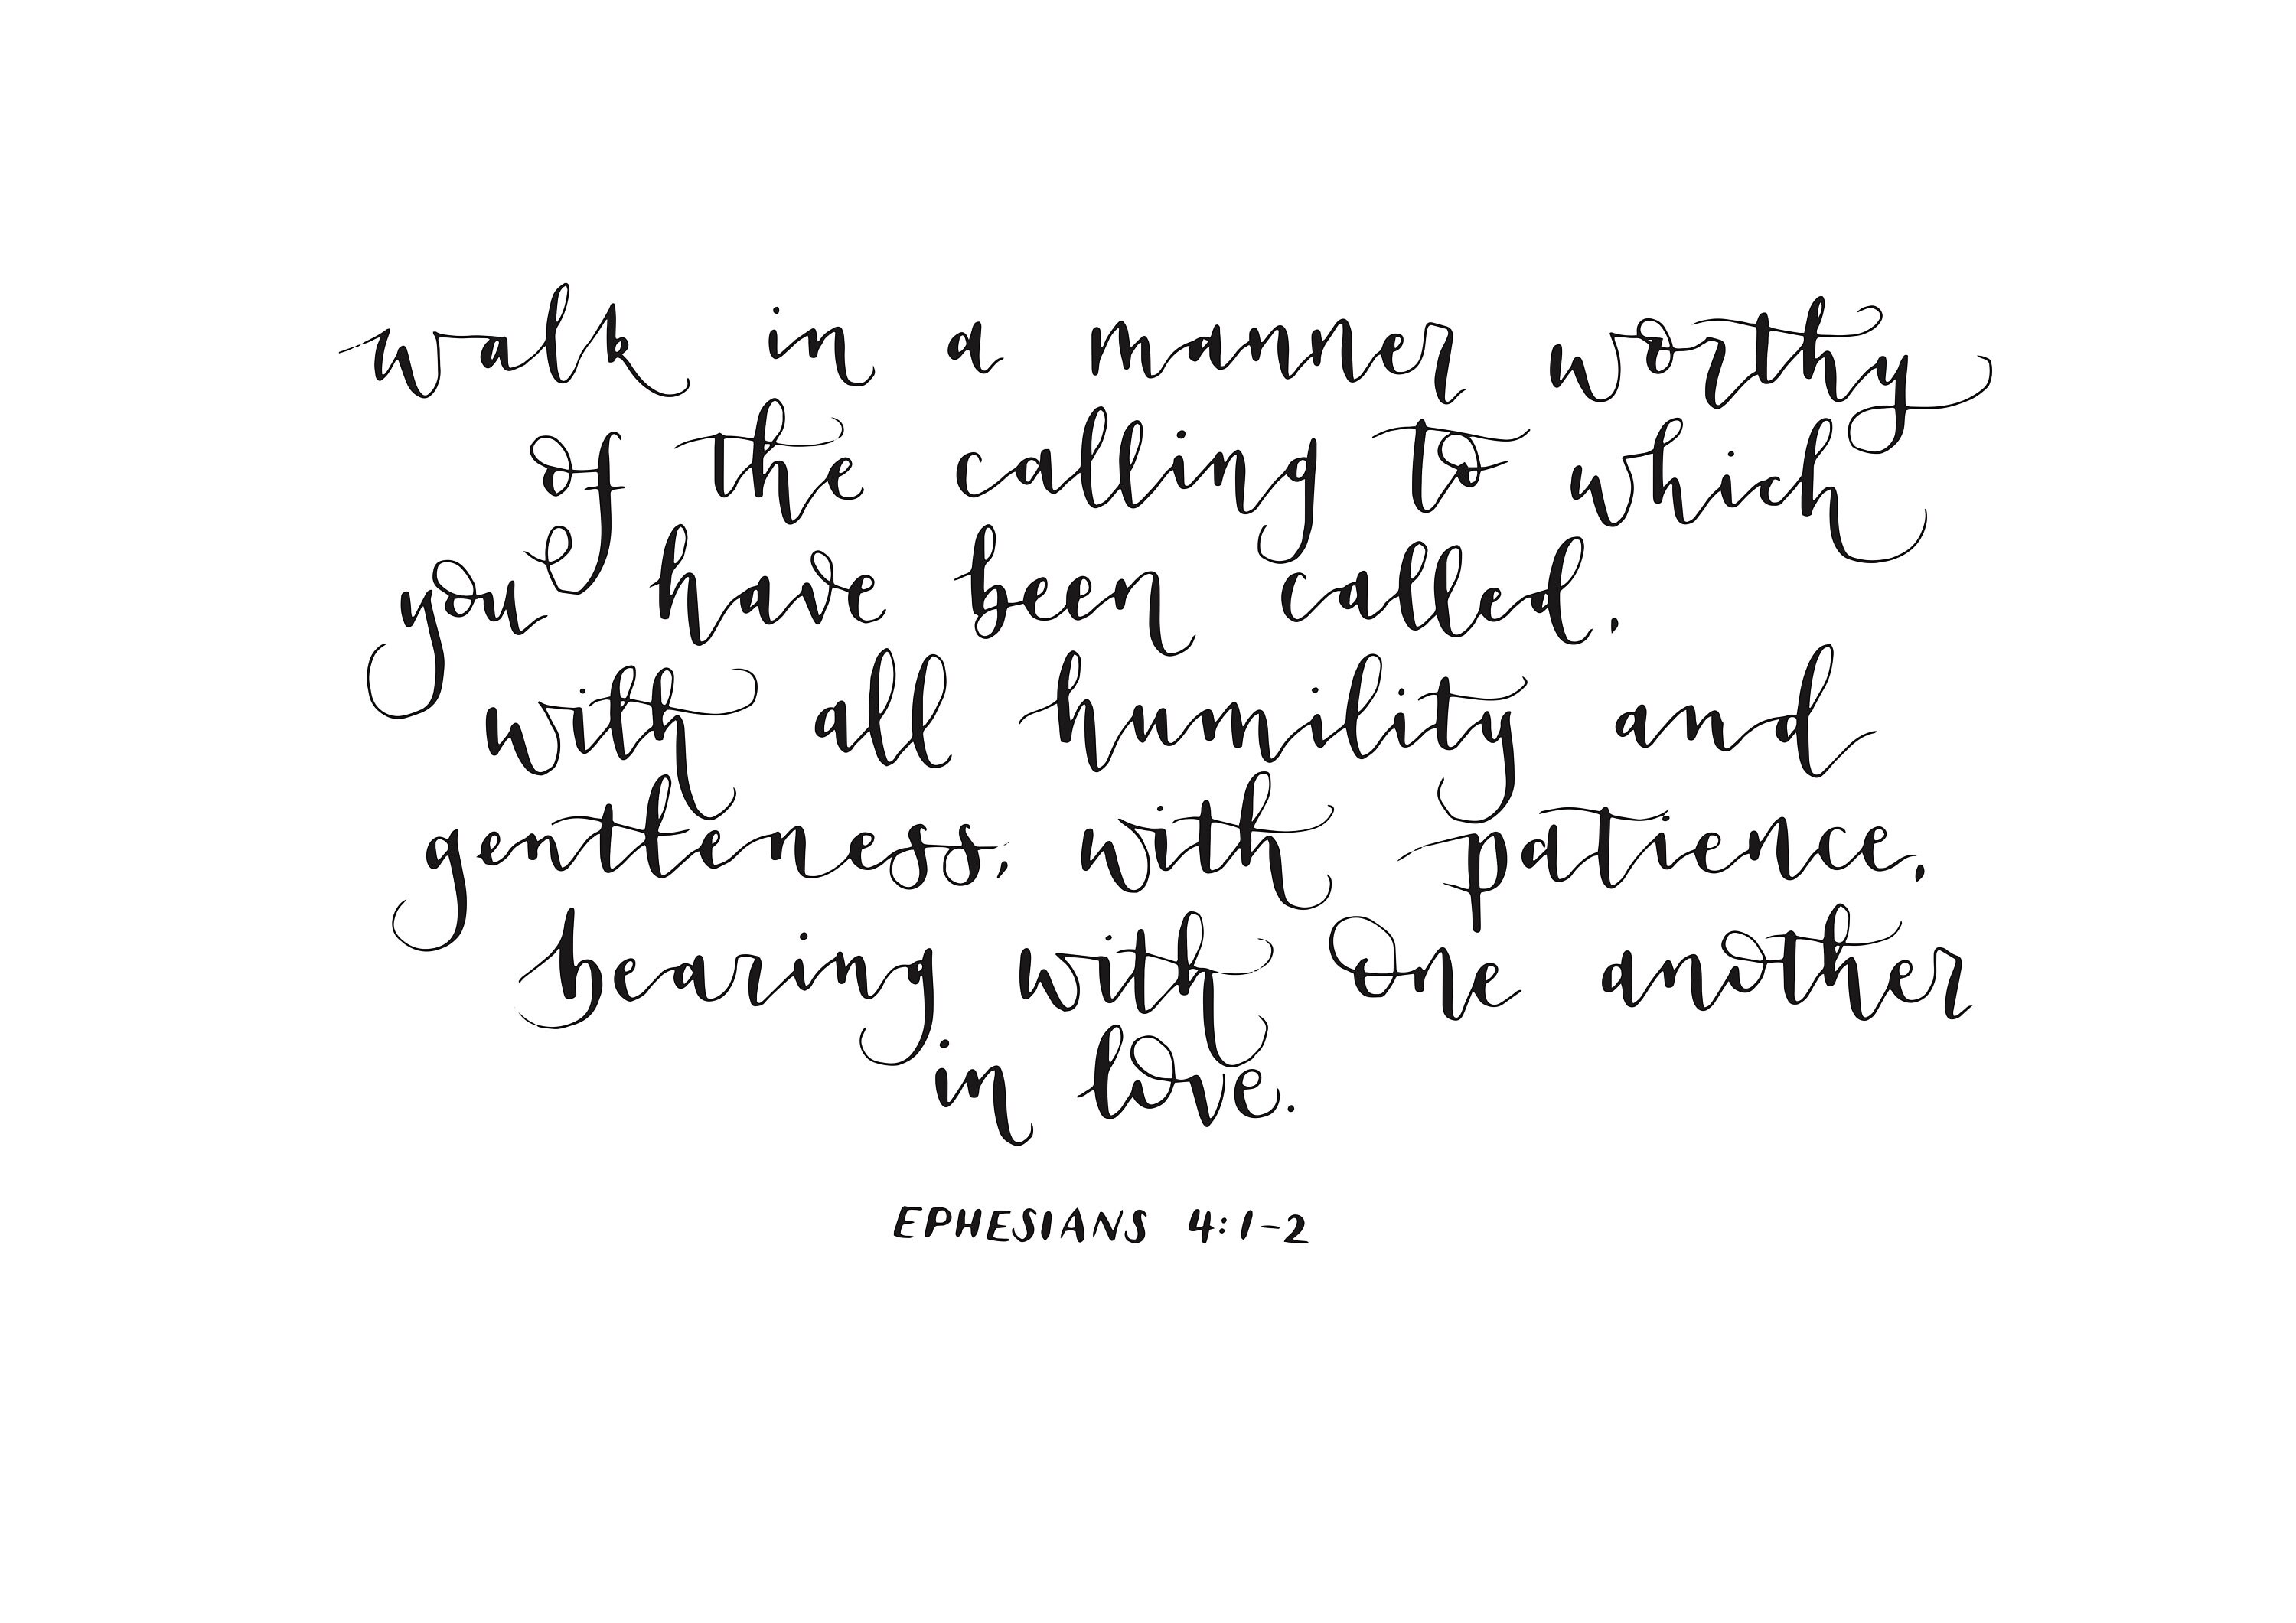 walk in a manner worthy
of the calling to which
you have been called,
with all humility and
gentleness, with patience,
bearing with one another
in love.
EPHESIANS 4:1-2